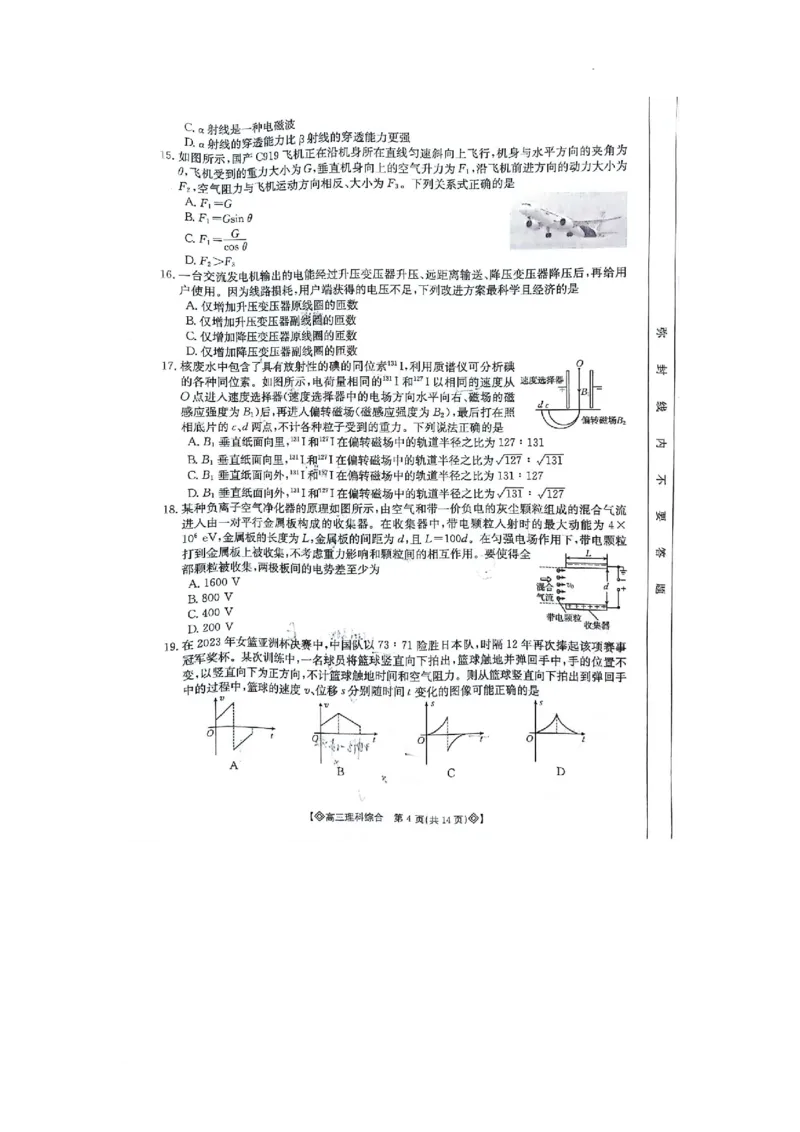 C. α射线是一种电磁波
D. α射线的穿透能力比β射线的穿透能力更强
15. 如图所示,国产C919飞机正在沿机身所在直线匀速斜向上飞行,机身与水平方向的夹角为
θ,飞机受到的重力大小为G,垂直机身向上的空气升力为F₁,沿飞机前进方向的动力大小为
F₂,空气阻力与飞机运动方向相反、大小为F₃。下列关系式正确的是
A. F₁=G
B. F₁=Gsin θ
C. F₁=G/cos θ
D. F₂>F₃
16. 一台交流发电机输出的电能经过升压变压器升压、远距离输送、降压变压器降压后,再给用
户使用。因为线路损耗,用户端获得的电压不足,下列改进方案最科学且经济的是
A. 仅增加升压变压器原线圈的匝数
B. 仅增加升压变压器副线圈的匝数
C. 仅增加降压变压器原线圈的匝数
D. 仅增加降压变压器副线圈的匝数
17. 核废水中包含了具有放射性的碘的同位素¹³¹I,利用质谱仪可分析碘
的各种同位素。如图所示,电荷量相同的¹³¹I和¹²⁷I以相同的速度从
O点进入速度选择器(速度选择器中的电场方向水平向右、磁场的磁
感应强度为B₁)后,再进入偏转磁场(磁感应强度为B₂),最后打在照
相底片的c、d两点,不计各种粒子受到的重力。下列说法正确的是
O
速度选择器
B₁
d c
偏转磁场B₂
A. B₁垂直纸面向里,¹³¹I和¹²⁷I在偏转磁场中的轨道半径之比为127:131
B. B₁垂直纸面向里,¹³¹I和¹²⁷I在偏转磁场中的轨道半径之比为√127:√131
C. B₁垂直纸面向外,¹³¹I和¹²⁷I在偏转磁场中的轨道半径之比为131:127
D. B₁垂直纸面向外,¹³¹I和¹²⁷I在偏转磁场中的轨道半径之比为√131:√127
18. 某种负离子空气净化器的原理如图所示,由空气和带一价负电的灰尘颗粒组成的混合气流
进入由一对平行金属板构成的收集器。在收集器中,带电颗粒入射时的最大动能为4×
10⁶ eV,金属板的长度为L,金属板的间距为d,且L=100d。在匀强电场作用下,带电颗粒
打到金属板上被收集,不考虑重力影响和颗粒间的相互作用。要使得全
部颗粒被收集,两极板间的电势差至少为
A. 1600 V
B. 800 V
C. 400 V
D. 200 V
L
混合
气流
v₀
d
带电颗粒
收集器
19. 在2023年女篮亚洲杯决赛中,中国队以73:71险胜日本队,时隔12年再次捧起该项赛事
冠军奖杯。某次训练中,一名球员将篮球竖直向下拍出,篮球触地并弹回手中,手的位置不
变,以竖直向下为正方向,不计篮球触地时间和空气阻力。则从篮球竖直向下拍出到弹回手
中的过程中,篮球的速度v、位移s分别随时间t变化的图像可能正确的是
v
O
t
A
v
O
t
B
s
O
t
C
s
O
t
D
【◇高三理科综合 第4页(共14页)◇】
弥
封
线
内
不
要
答
题